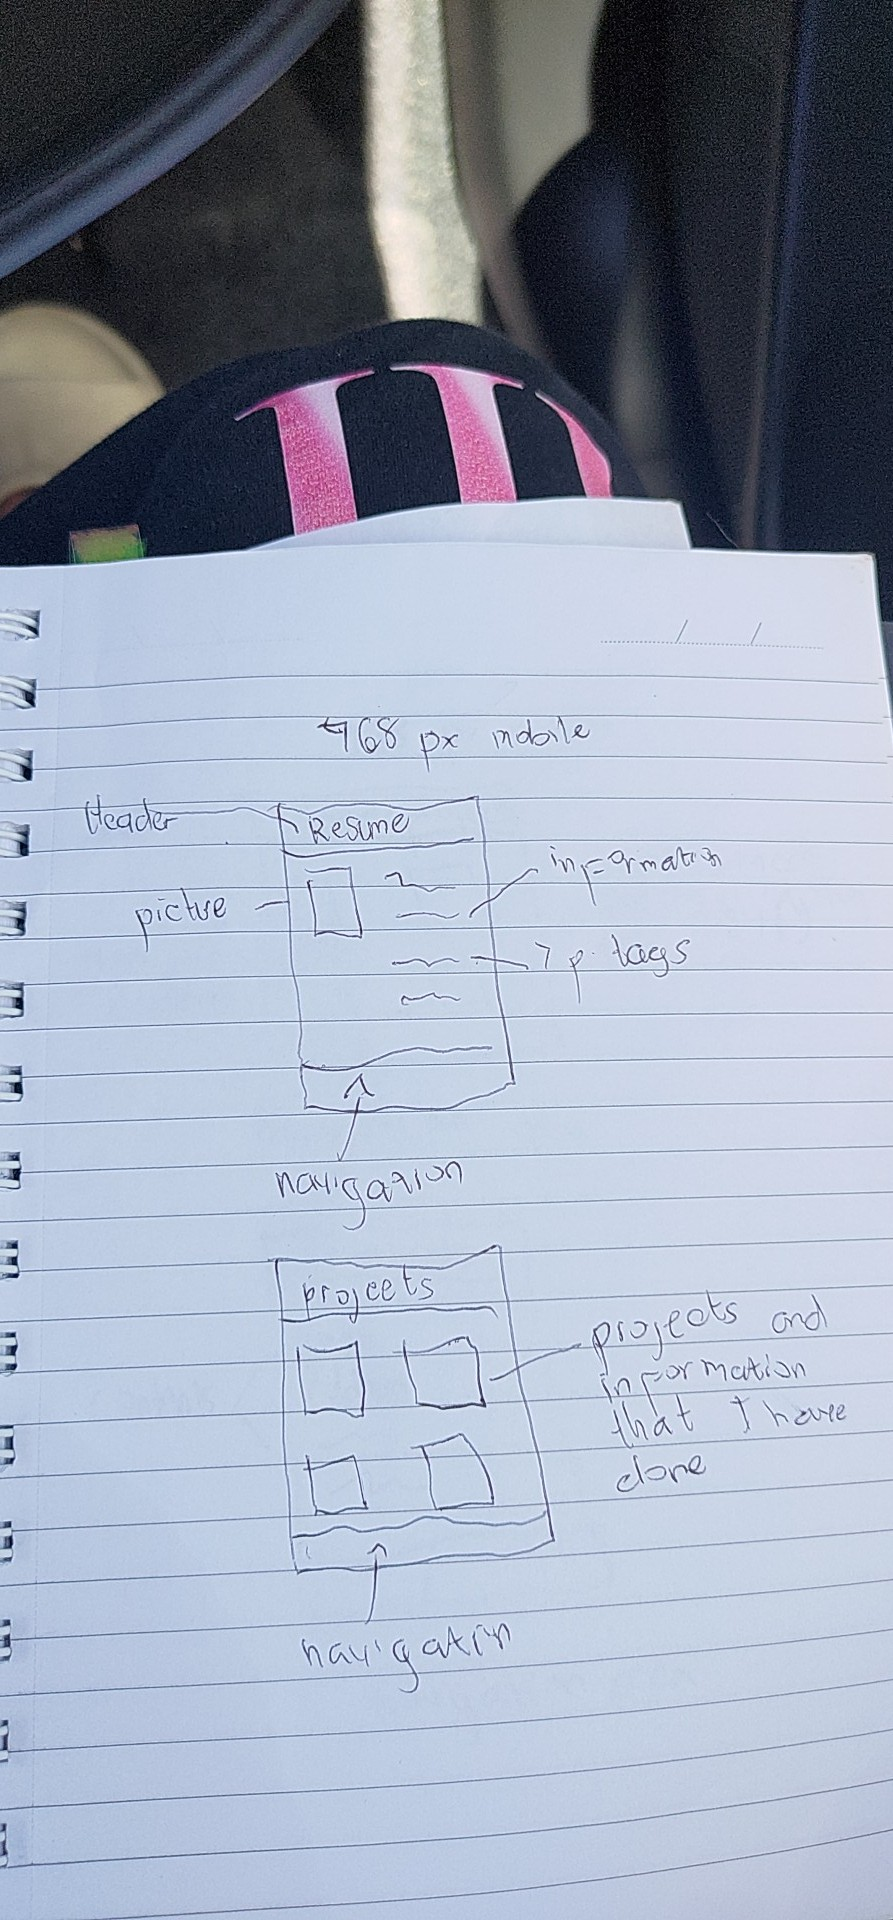 768 px mobile
Header
Resume
information
picture
> p tags
navigation
projects
projects and
information
that I have
done
navigation